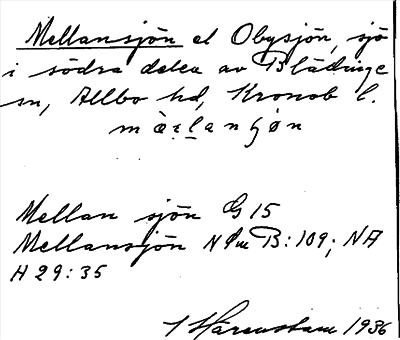 Mellansjön el Obysjön, sjö
i södra delen av Blädinge
sn, Allbo hd, Kronob l.
Mellan sjön G 15
Mellansjön N Sm B:109; NA
H 29:35
Härenstam 1936